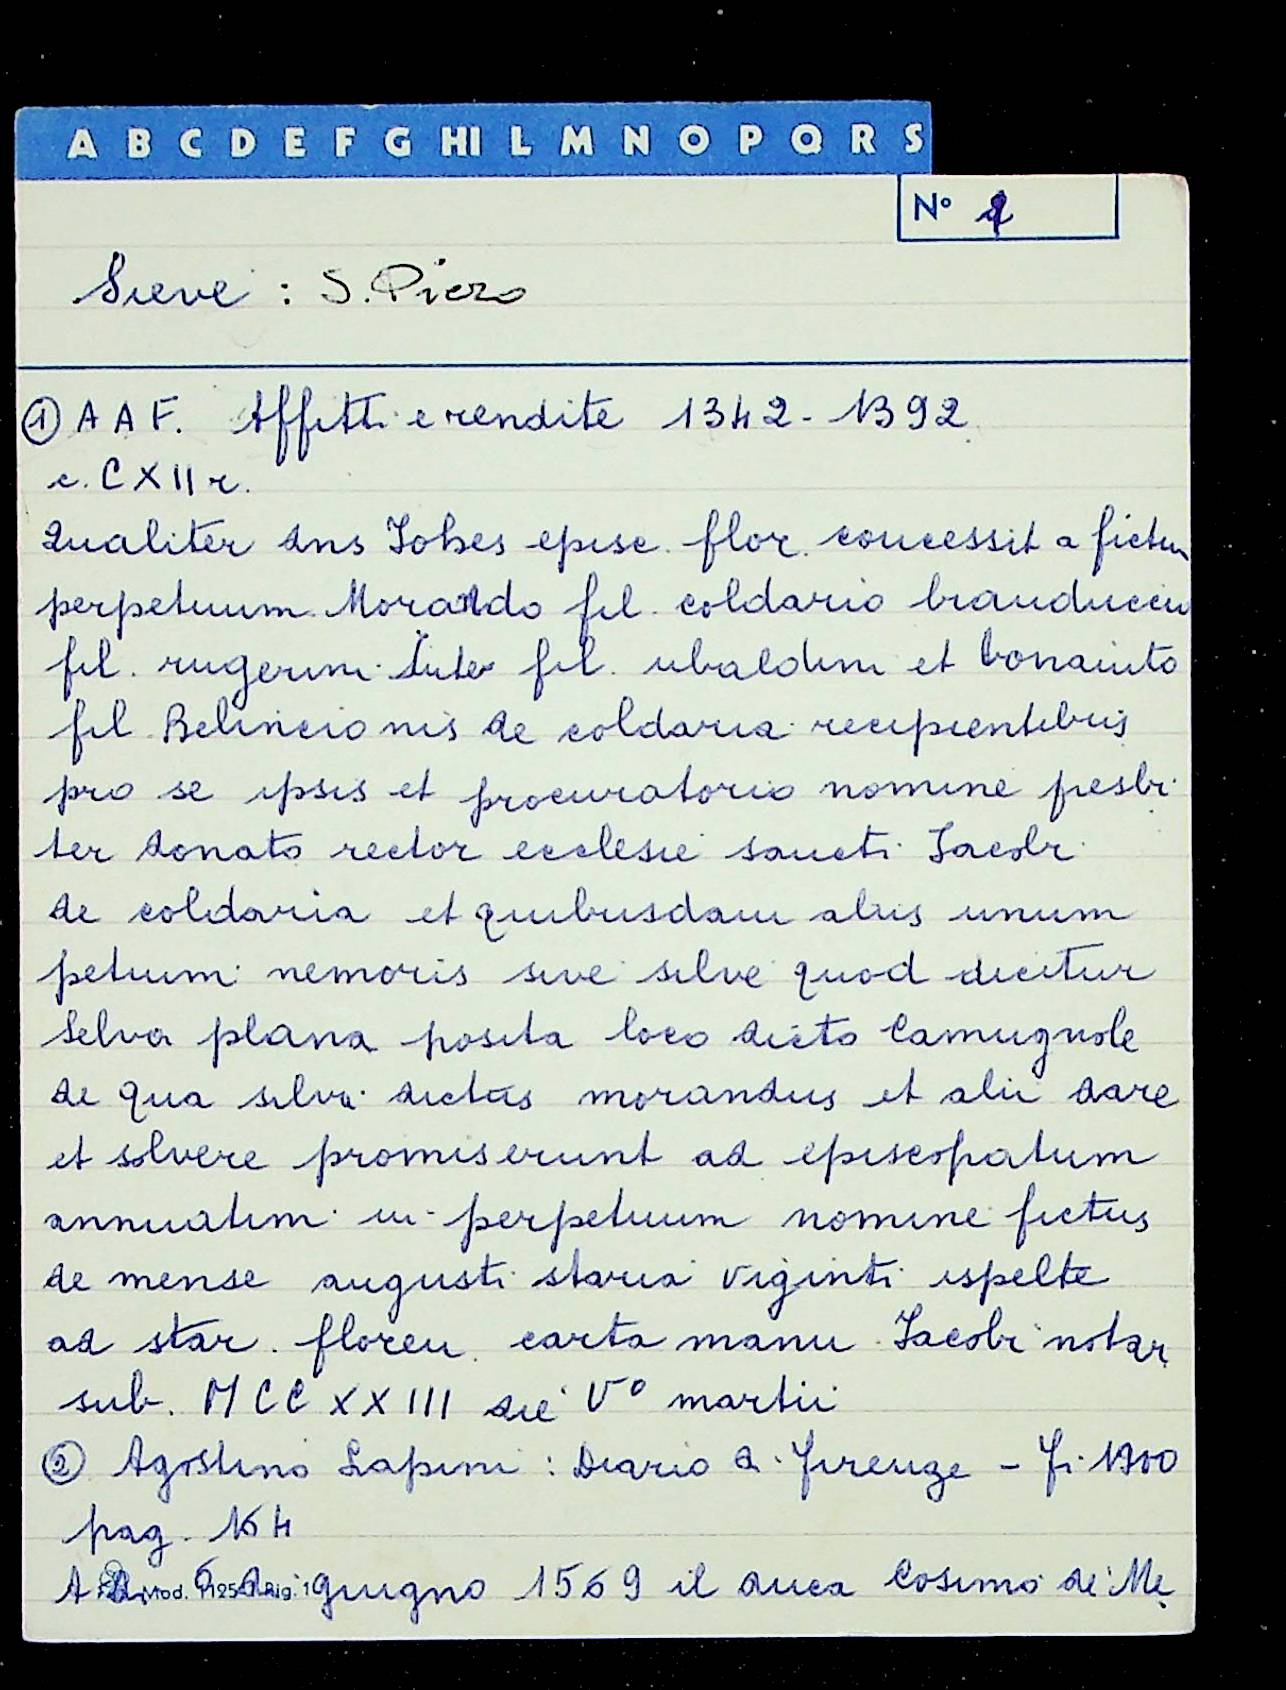 A B C D E F G HI L M N O P Q R S
N°
Sieve : S. Piero
① A A F. Affitti e rendite 1342 - 1392
c. CXII r.
Qualiter dns Iohes episc. flor. concessit a fictum
perpetuum Morando fil. coldario branduccio
fil. rugerini Inter fil. ubaldini et bonaiuto
fil Belincionis de coldaria recipientibus
pro se ipsis et procuratorio nomine presbi
ter donato rector ecclesie sancti Iacobi
de coldaria et quibusdam aliis unum
petium nemoris sive silve quod dicitur
Selva plana posita loco dicto Camugnole
de qua silva dictus morandus et alii dare
et solvere promiserunt ad episcopatum
annuatim in perpetuum nomine fictus
de mense augusti staria viginti ispelte
ad star. floren. carta manu Iacobi notar
sub. MCCXXIII die V° martii
② Agostino Lapini : Diario d. Firenze - Fi. 1900
pag. 164
A di 6 di giugno 1569 il duca Cosimo de' Me